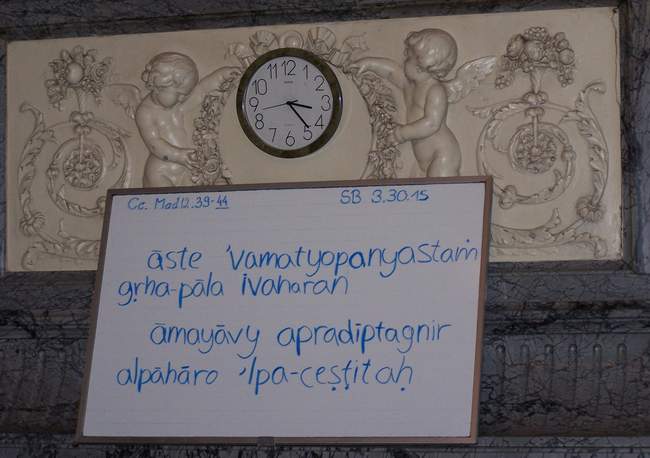 12
1
2
3
4
5
6
7
8
9
10
11
Cc. Mad 12.39-44 SB 3.30.15
āste 'vamatyopanyastaṁ
gṛha-pāla ivaharan
āmayāvy apradīptagnir
alpāhāro 'lpa-ceṣṭitaḥ